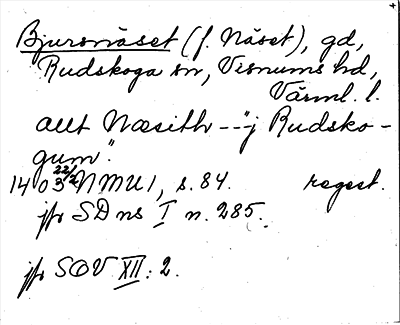 Bjursnäset (f. Näset), gd,
Rudskoga sn, Visnums hd,
Värml. l.
allt Næsith --"j Rudsko-
gum".
1403 22/2 NMU1, s. 84. regest.
jfr SD ns I n. 285.
jfr SOV XII: 2.